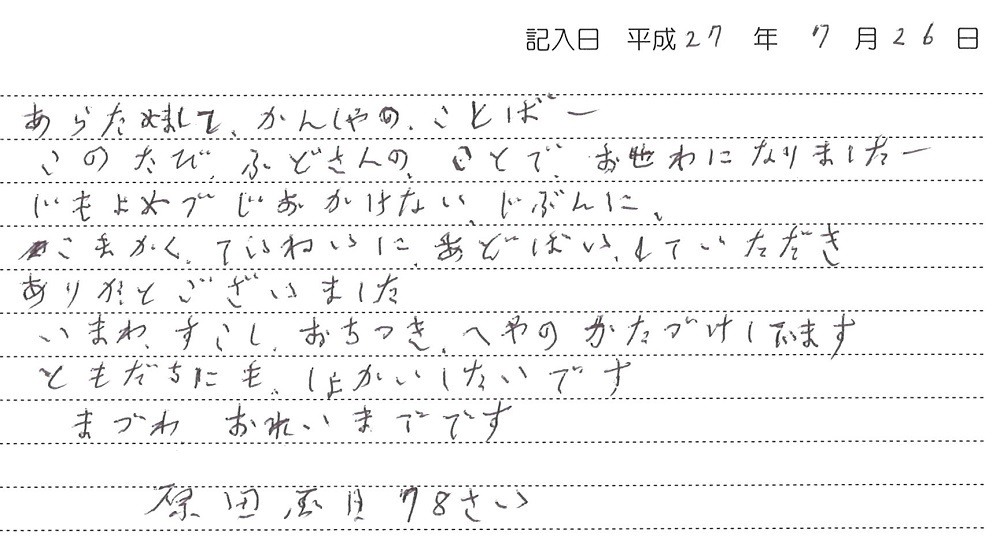 記入日 平成27年 7月26日
あらためまして、かんしゃの、ことばー
このたび、ふどさんの、ことで、お世わになりましたー
じもよめづじおかけない、じぶんに、
こまかく、ていねいに、あどばい、していただき
ありがとございました
いまわ、すこし、おちつき、へやのかたづけしてます
ともだちにも、しょかいしたいです
まづわ おれいまでです
原田 78さい